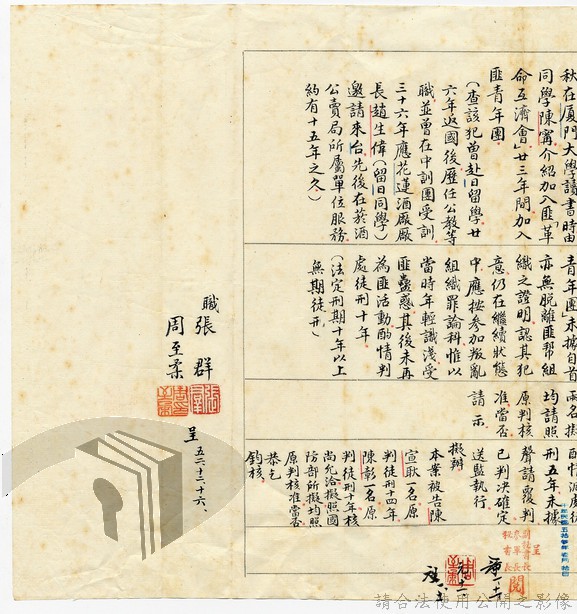 秋在厦門大學讀書時由
同學陳甯介紹加入匪「革
命互濟會」廿三年間加入
匪青年團
(查該犯曾赴日留學廿
六年返國後歷任公教等
職並曾在中訓團受訓
三十六年應花蓮酒厰厰
長趙生偉(留日同學)
邀請來台先後在菸酒
公賣局所屬單位服務
約有十五年之久)
青年團未據自首
亦無脫離匪幫組
織之證明認其犯
意仍在繼續狀態
中應按參加叛亂
組織罪論科惟以
當時年輕識淺受
匪蠱惑其後未再
為匪活動酌情判
處徒刑十年
(法定刑期十年以上
無期徒刑)
兩名
均請照
原判核
准當否
請示
酌情減處徒
刑五年未據
聲請覆判
已判決確定
送監執行
擬辦
本案被告陳
宣耿一名原
判徒刑十四年
陳彰一名原
判徒刑十年核
尚允洽擬照國
防部所擬均照
原判核准當否
恭乞
鈞核
職張群
周至柔
呈
五二、十二、十六、
呈
閱
請合法使用公開之影像